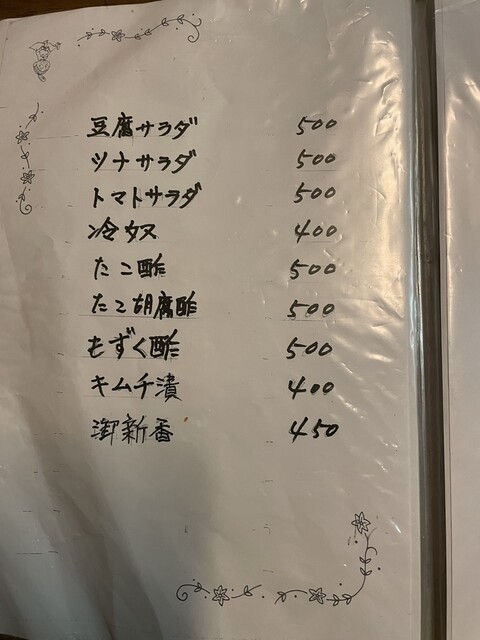 豆腐サラダ 500
ツナサラダ 500
トマトサラダ 500
冷奴 400
たこ酢 500
たこ胡腐酢 500
もずく酢 500
キムチ漬 400
御新番 450